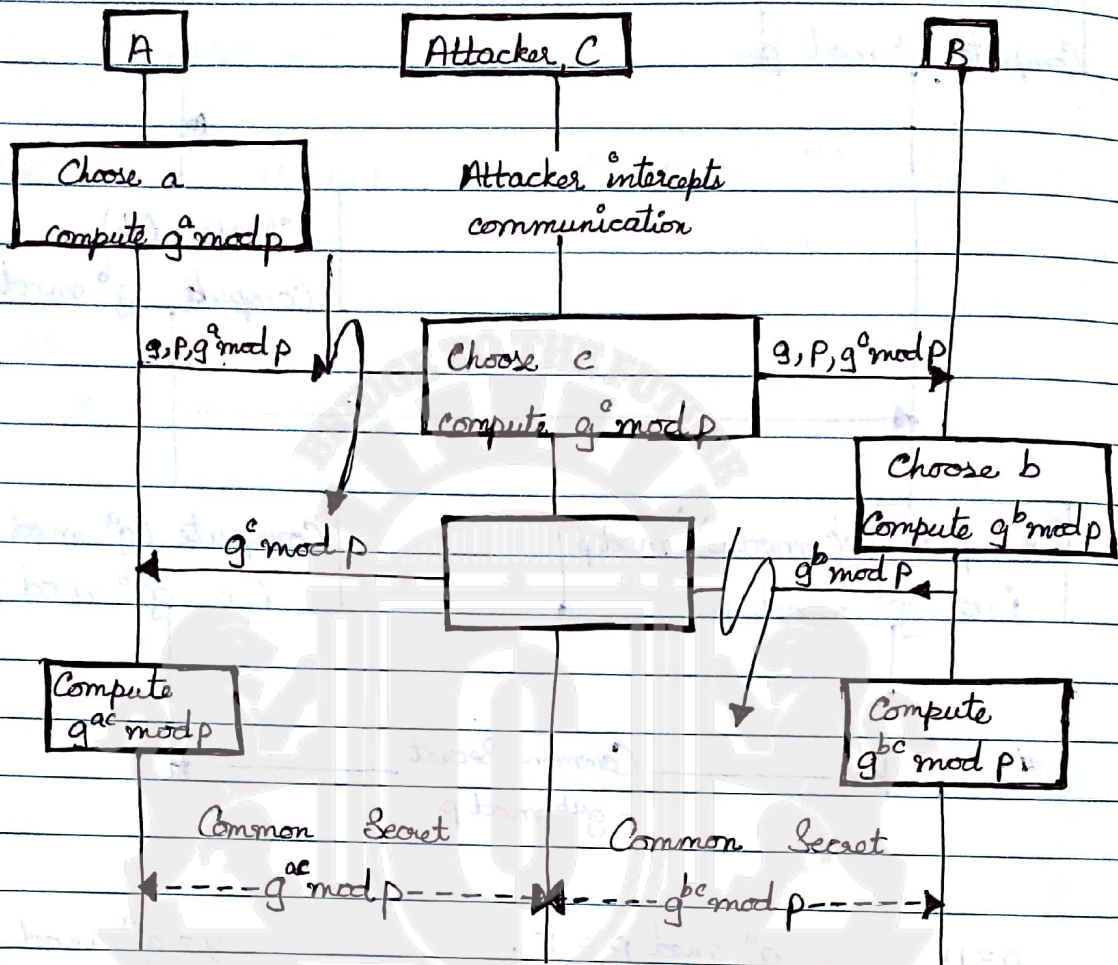 A
Attacker, C
B
Choose a
compute g^a mod p
Attacker intercepts
communication
g, P, g^a mod p
Choose c
compute g^c mod p
g, P, g^c mod p
Choose b
Compute g^b mod p
g^c mod p
g^b mod p
Compute
g^ac mod p
Compute
g^bc mod p.
Common Secret
g^ac mod p
Common Secret
g^bc mod p
BRIDGE TO THE FUTURE